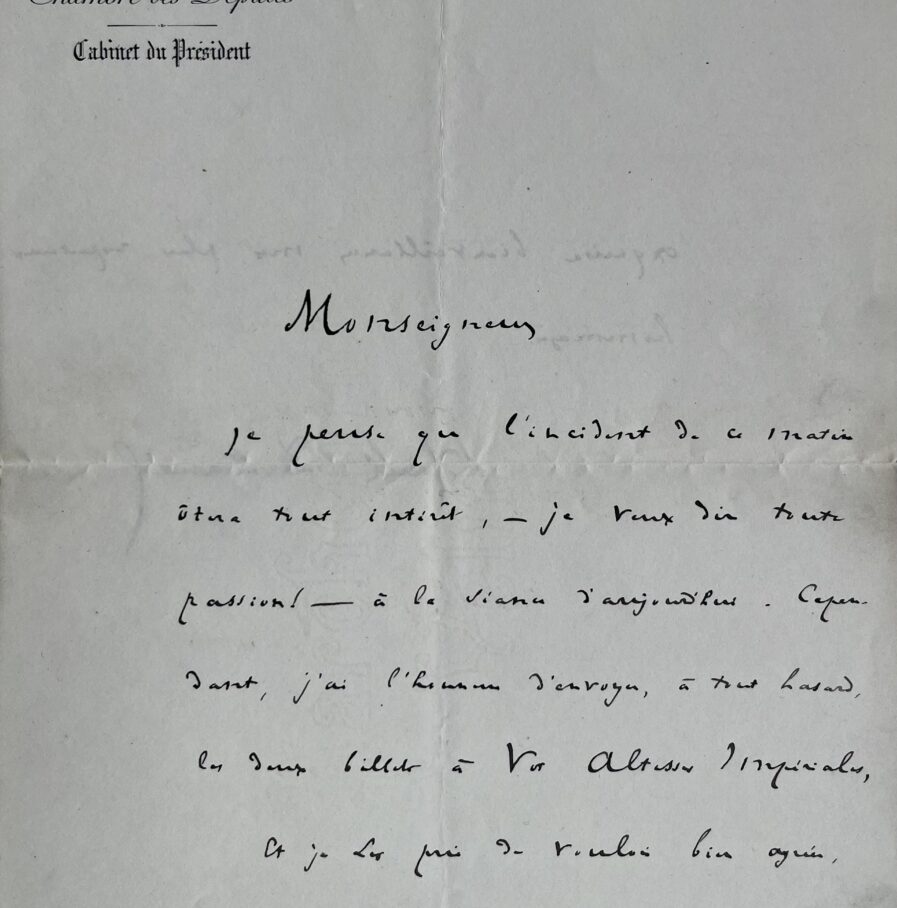 Chambre des Députés
Cabinet du Président
Monseigneur
Je pense que l'incident de ce matin
ôtera tout intérêt, — je veux dire toute
passion! — à la séance d'aujourd'hui. Cepen-
dant, j'ai l'honneur d'envoyer, à tout hasard,
les deux billets à Vos Altesses Impériales,
Et je Les prie de vouloir bien agréer,